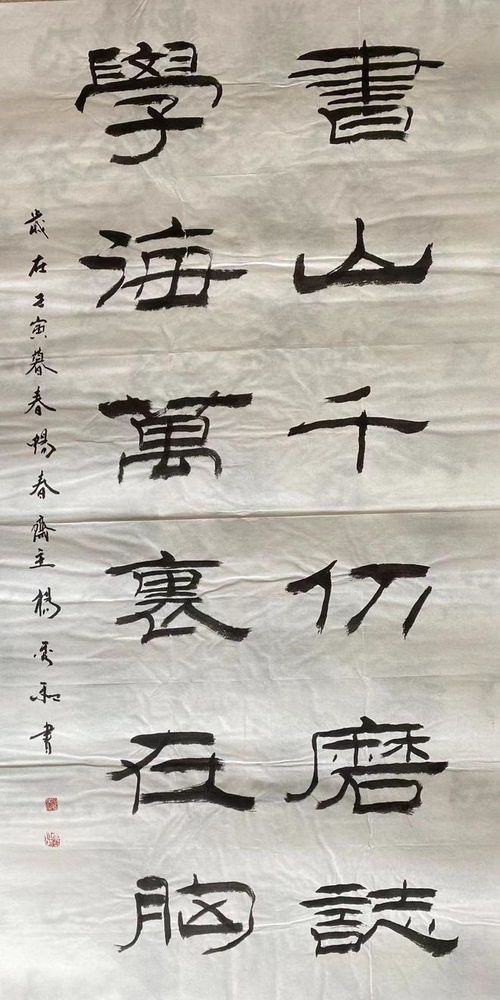 書山千仞磨誌
學海萬裏在胸
歲在壬寅暮春暢春齋主楊秀和書